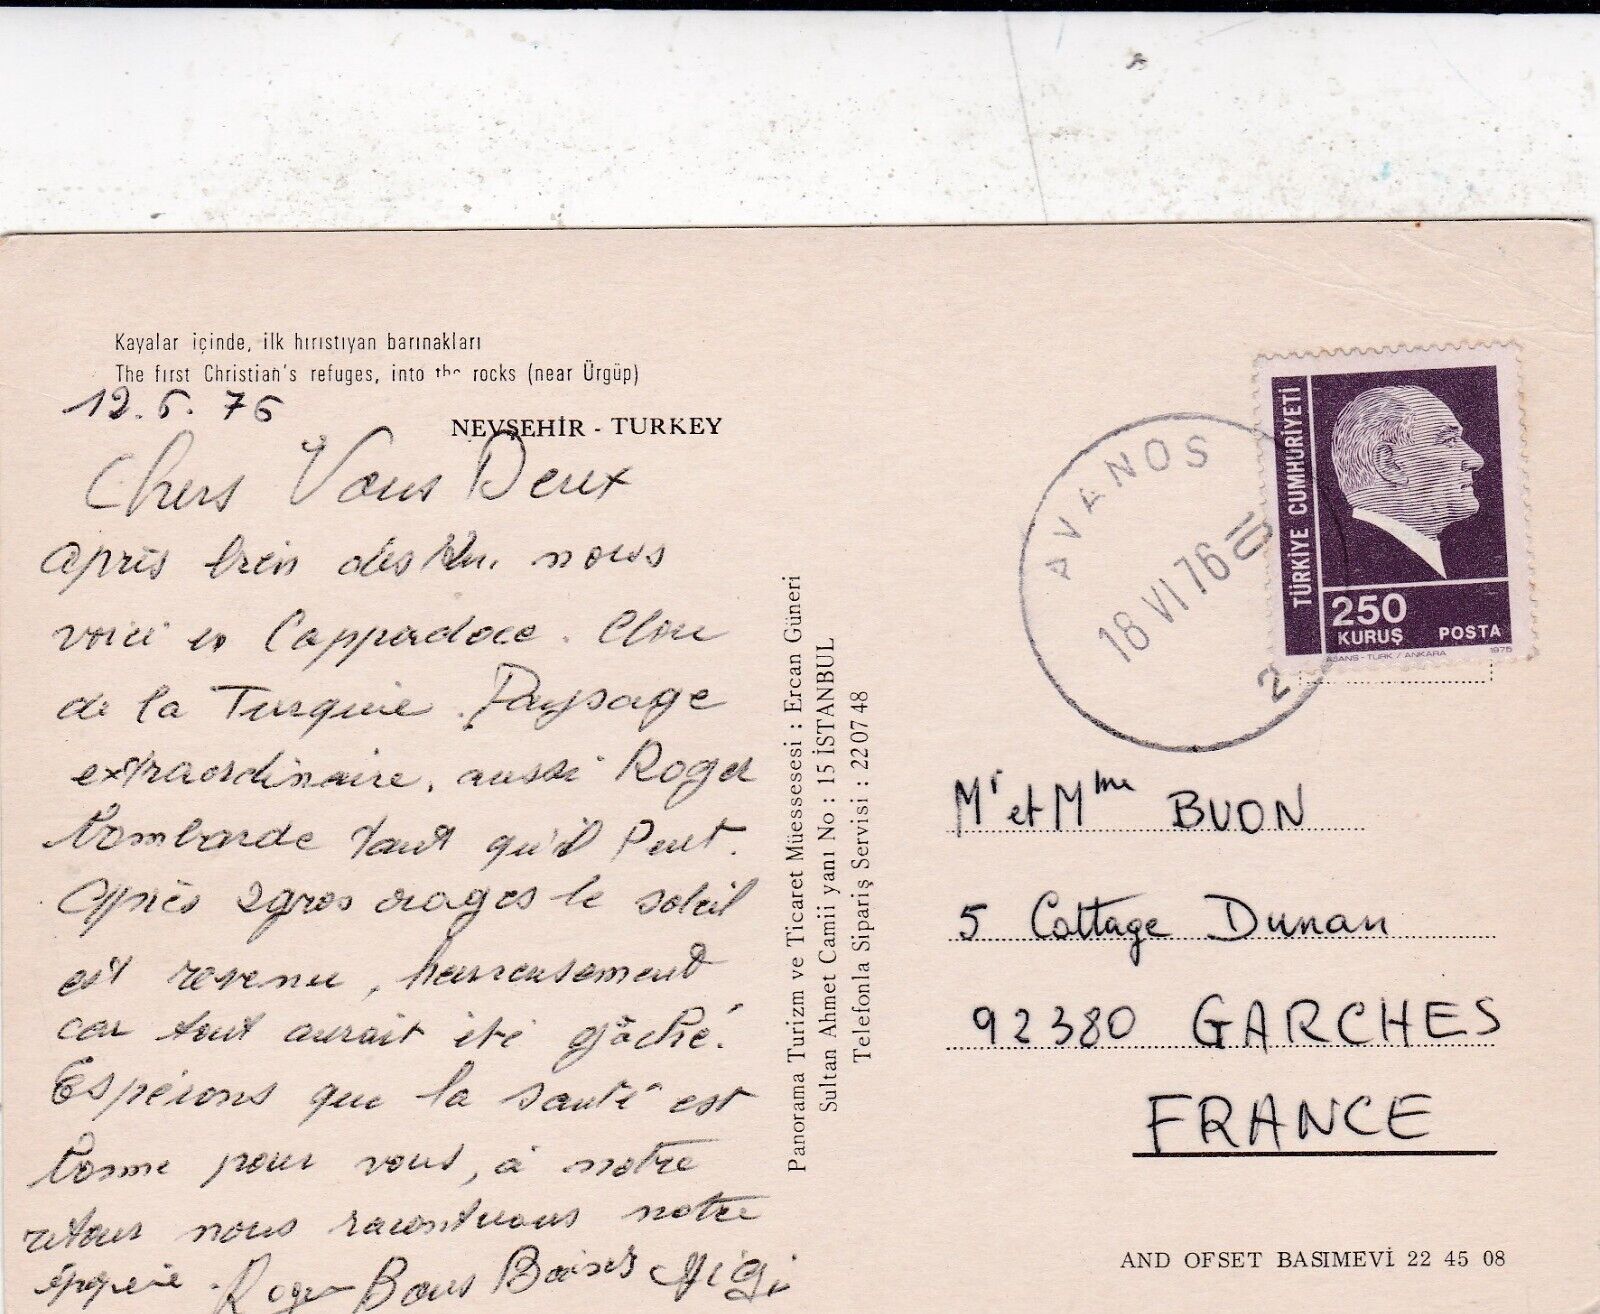 Kayalar içinde, ilk hırıstıyan barınakları
The fırst Christian's refuges, into the rocks (near Ürgüp)
NEVŞEHİR - TURKEY
12.6.76
Chers Vous Deux
après bien des Km. nous
voici en Cappadoce. Clou
de la Turquie. Paysage
extraordinaire, aussi Roger
bombarde tant qu'il Peut.
après 2 gros orages le soleil
est revenu, heureusement
car tout aurait été gâché.
Espérons que la santé est
bonne pour vous, à notre
retour nous raconterons notre
épopée. Roger Bons Baisers Gigi
Panorama Turizm ve Ticaret Müessesesi : Ercan Güneri
Sultan Ahmet Camii yanı No : 15 İSTANBUL
Telefonla Sipariş Servisi : 22 07 48
AVANOS
18 VI 76
2
TÜRKİYE CUMHURİYETİ
250
KURUŞ POSTA
AJANS - TÜRK / ANKARA 1975
Mr et Mme BUON
5 Cottage Dunan
92380 GARCHES
FRANCE
AND OFSET BASIMEVİ 22 45 08